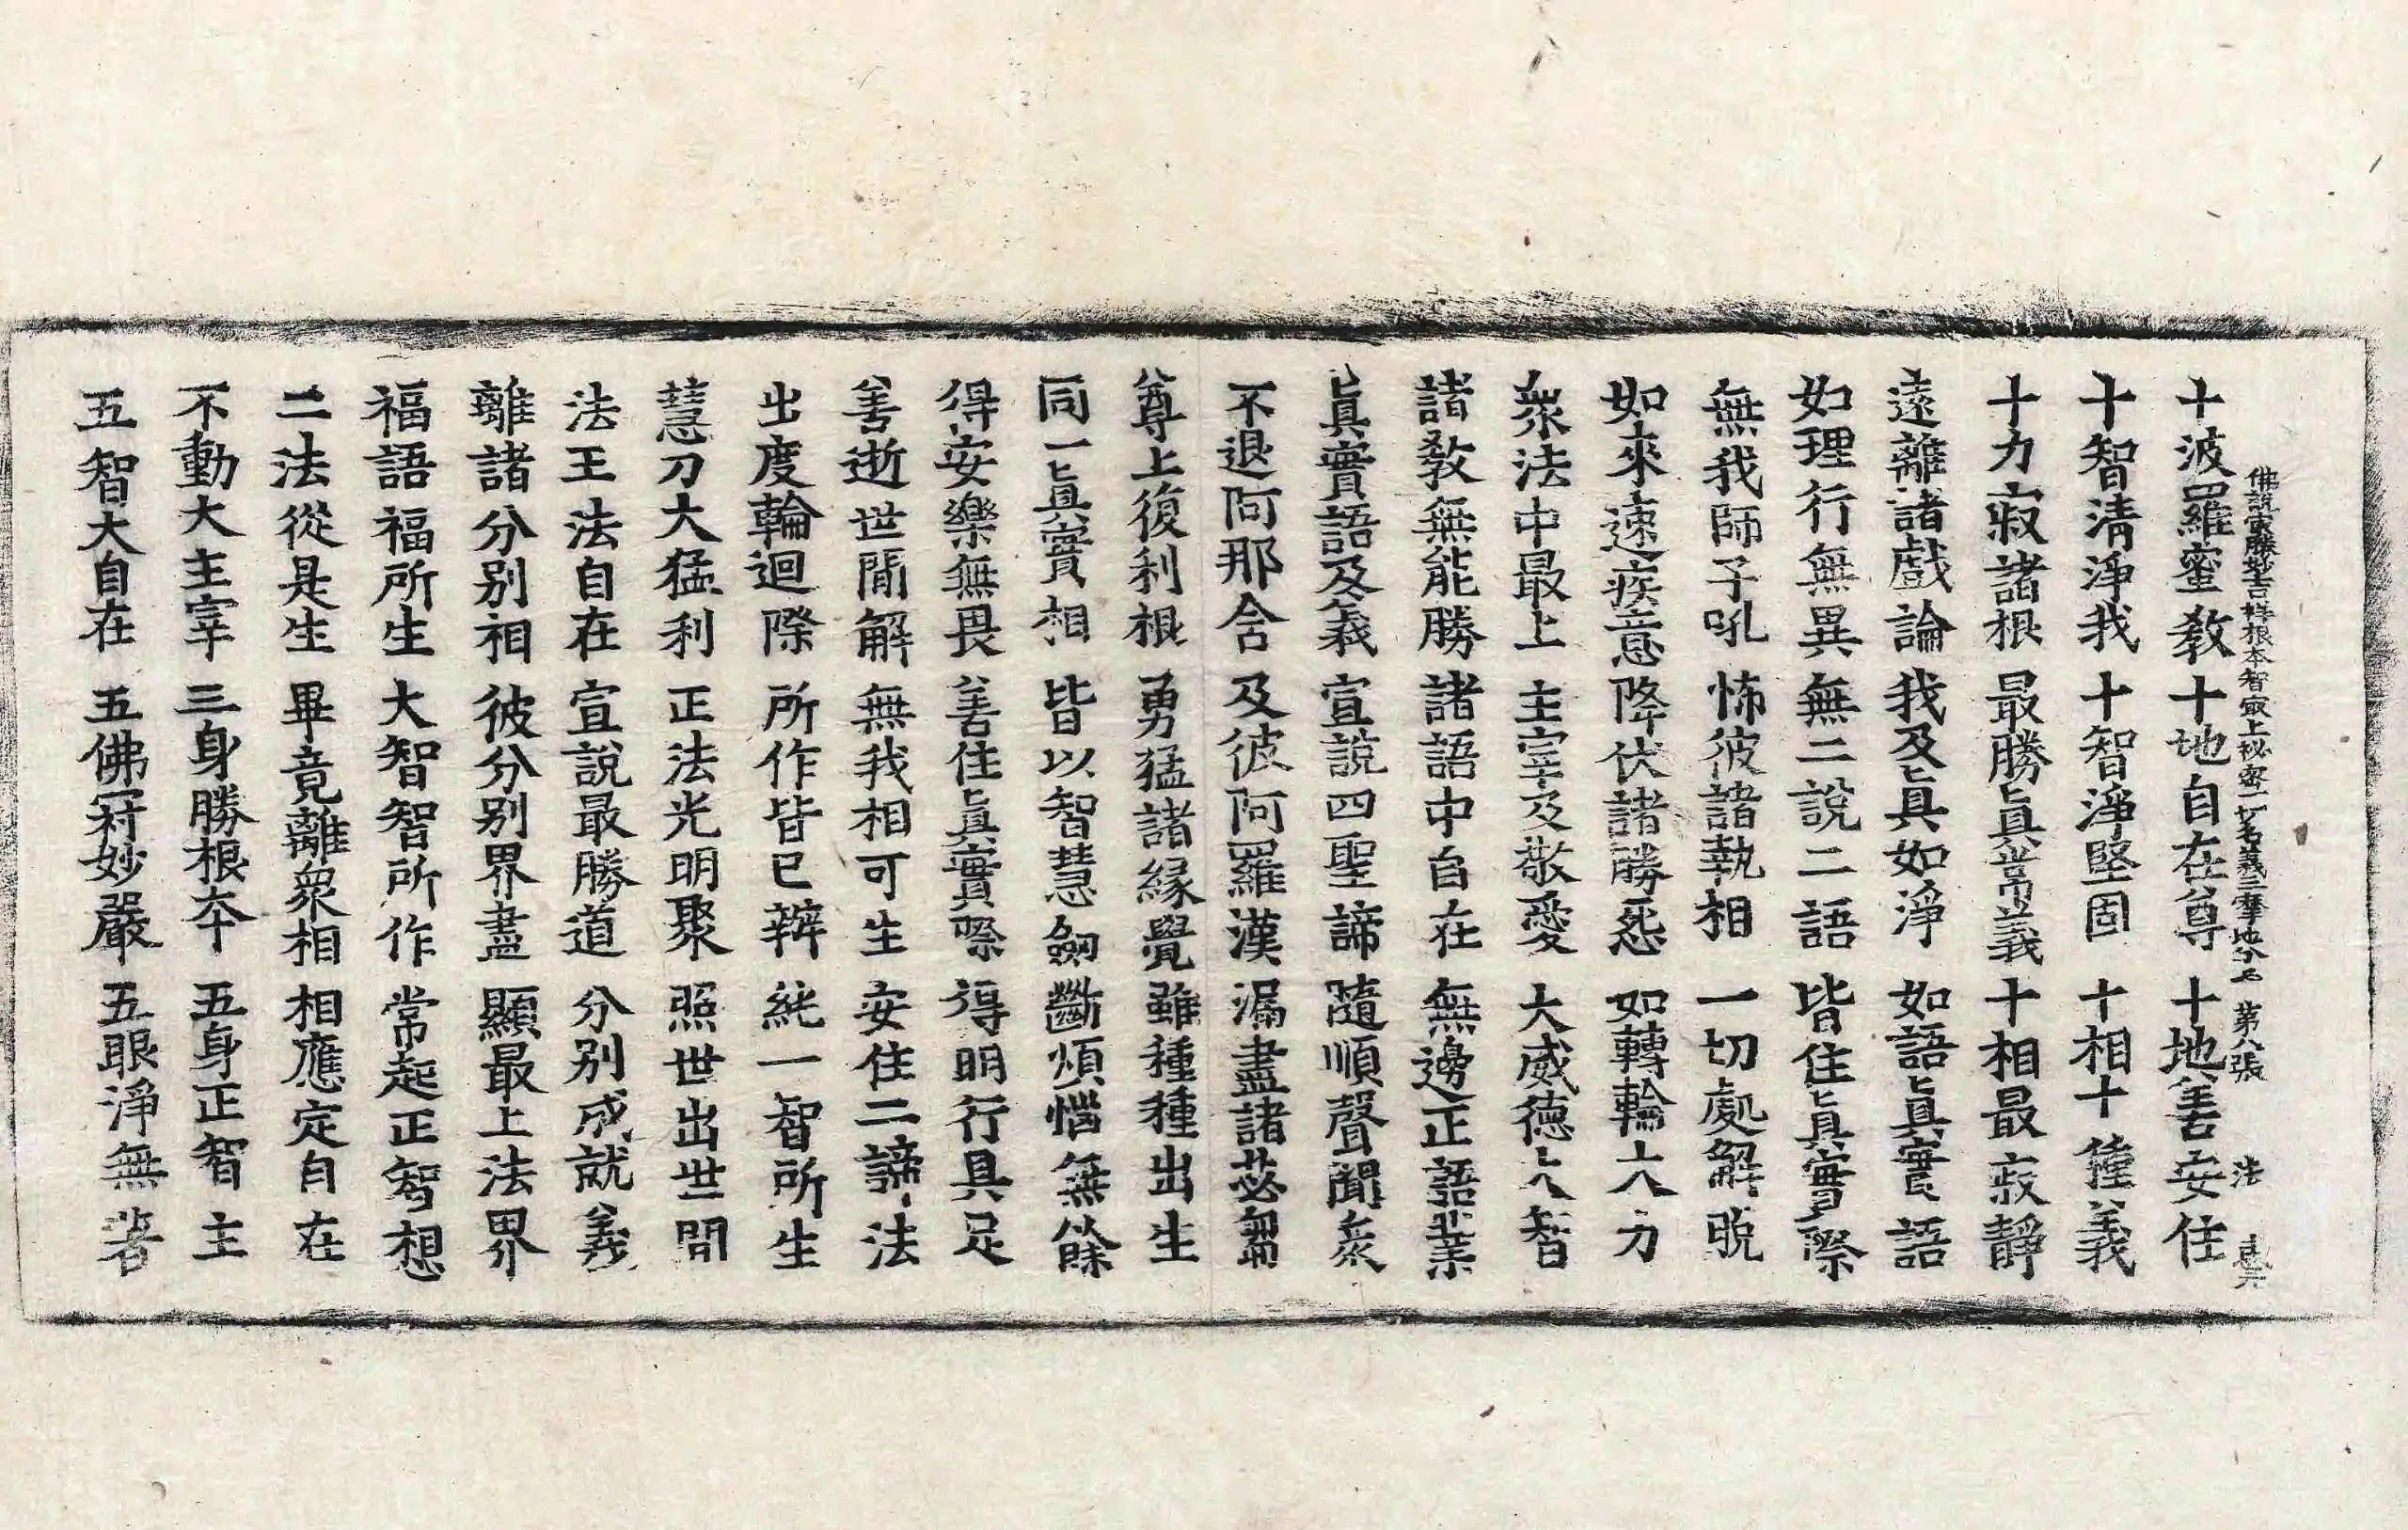 佛說最勝妙吉祥根本智最上秘密一切名義三摩地分 第八張 法
十波羅蜜教 十地自在尊 十地善安住
十智清淨我 十智淨堅固 十相十種義
十力寂諸根 最勝眞常義 十相最寂靜
遠離諸戲論 我及眞如淨 如語眞實語
如理行無異 無二說二語 皆住眞實際
無我師子吼 怖彼諸執相 一切處解脫
如來速疾意 降伏諸勝惌 如轉輪大力
衆法中最上 主宰及敬愛 大威德大智
諸教無能勝 諸語中自在 無邊正語業
眞實語及義 宣說四聖諦 隨順聲聞衆
不退阿那含 及彼阿羅漢 漏盡諸苾芻
尊上復利根 勇猛諸緣覺 雖種種出生
同一眞實相 皆以智慧劒 斷煩惱無餘
得安樂無畏 善住眞實際 得明行具足
善逝世間解 無我相可生 安住二諦法
出度輪迴際 所作皆已辦 純一智所生
慧刀大猛利 正法光明聚 照世出世間
法王法自在 宣說最勝道 分別成就義
離諸分別相 彼分別界盡 顯最上法界
福語福所生 大智智所作 常起正智想
二法從是生 畢竟離衆相 相應定自在
不動大主宰 三身勝根夲 五身正智主
五智大自在 五佛冠妙嚴 五眼淨無著